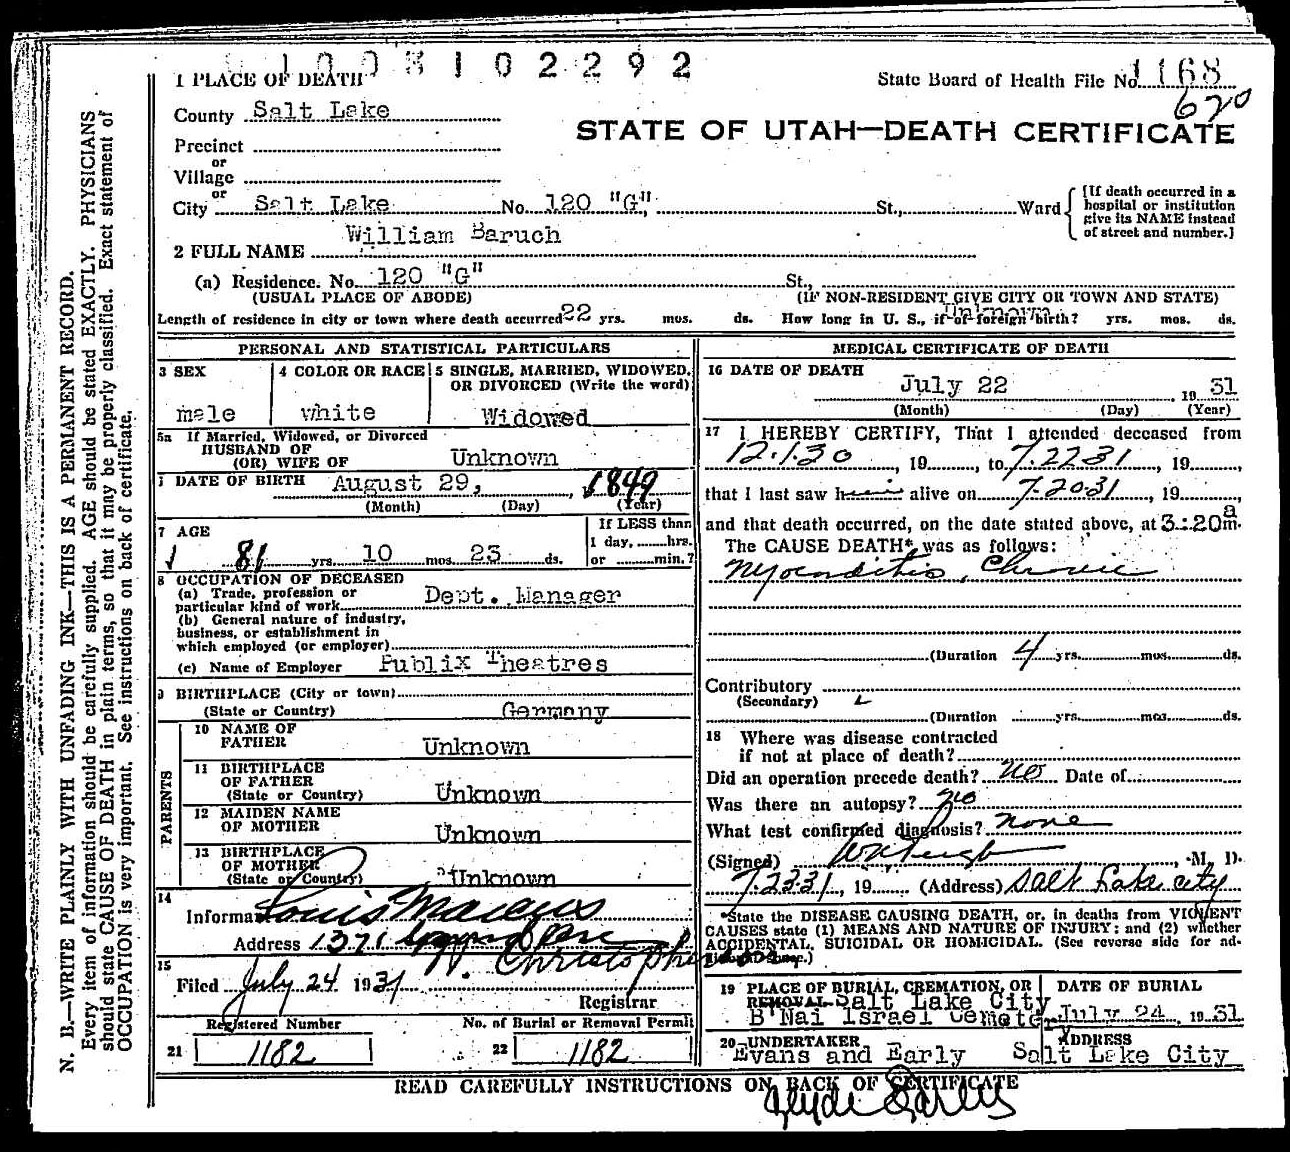 1003102292
1 PLACE OF DEATH
State Board of Health File No. 1168
620
County Salt Lake
STATE OF UTAH—DEATH CERTIFICATE
Precinct
or
Village
or
City Salt Lake No. 120 "G", St., Ward
[If death occurred in a
hospital or institution
give its NAME instead
of street and number.]
2 FULL NAME William Baruch
(a) Residence. No. 120 "G" St.,
(USUAL PLACE OF ABODE) (IF NON-RESIDENT GIVE CITY OR TOWN AND STATE)
Length of residence in city or town where death occurred 22 yrs. mos. ds. How long in U. S., if of foreign birth? Unknown yrs. mos. ds.
PERSONAL AND STATISTICAL PARTICULARS
3 SEX
male
4 COLOR OR RACE
white
5 SINGLE, MARRIED, WIDOWED,
OR DIVORCED (Write the word)
Widowed
5a If Married, Widowed, or Divorced
HUSBAND OF
(OR) WIFE OF Unknown
DATE OF BIRTH August 29, 1849
(Month) (Day) (Year)
7 AGE
81 yrs. 10 mos. 23 ds.
If LESS than
1 day, hrs.
or min.?
8 OCCUPATION OF DECEASED
(a) Trade, profession or
particular kind of work Dept. Manager
(b) General nature of industry,
business, or establishment in
which employed (or employer)
(c) Name of Employer Publix Theatres
9 BIRTHPLACE (City or town)
(State or Country) Germany
PARENTS
10 NAME OF
FATHER Unknown
11 BIRTHPLACE
OF FATHER
(State or Country) Unknown
12 MAIDEN NAME
OF MOTHER Unknown
13 BIRTHPLACE
OF MOTHER
(State or Country) Unknown
14
Informant Louis Marcus
Address 1371
15
Filed July 24 1931 Christopherson
Registrar
Registered Number
21 1182
No. of Burial or Removal Permit
22 1182
MEDICAL CERTIFICATE OF DEATH
16 DATE OF DEATH
July 22 1931
(Month) (Day) (Year)
17 I HEREBY CERTIFY, That I attended deceased from
12.1.30, 19, to 7.22 31, 19,
that I last saw him alive on 7.20 31, 19,
and that death occurred, on the date stated above, at 3:20 a m.
The CAUSE DEATH* was as follows:
Myocarditis, Chronic
(Duration 4 yrs. mos. ds.
Contributory
(Secondary)
(Duration yrs. mos. ds.
18 Where was disease contracted
if not at place of death?
Did an operation precede death? No Date of
Was there an autopsy? No
What test confirmed diagnosis? none
(Signed) , M. D.
7.23 31, 19 (Address) Salt Lake City
*State the DISEASE CAUSING DEATH, or, in deaths from VIOLENT
CAUSES state (1) MEANS AND NATURE OF INJURY; and (2) whether
ACCIDENTAL, SUICIDAL OR HOMICIDAL. (See reverse side for ad-
ditional space.)
19 PLACE OF BURIAL, CREMATION, OR
REMOVAL Salt Lake City
B'Nai Israel Cemetery
DATE OF BURIAL
July 24, 1931
20 UNDERTAKER
Evans and Early
ADDRESS
Salt Lake City
READ CAREFULLY INSTRUCTIONS ON BACK OF CERTIFICATE
Clyde
N. B.—WRITE PLAINLY WITH UNFADING INK—THIS IS A PERMANENT RECORD.
Every item of information should be carefully supplied. AGE should be stated EXACTLY. PHYSICIANS
should state CAUSE OF DEATH in plain terms, so that it may be properly classified. Exact statement of
OCCUPATION is very important. See instructions on back of certificate.